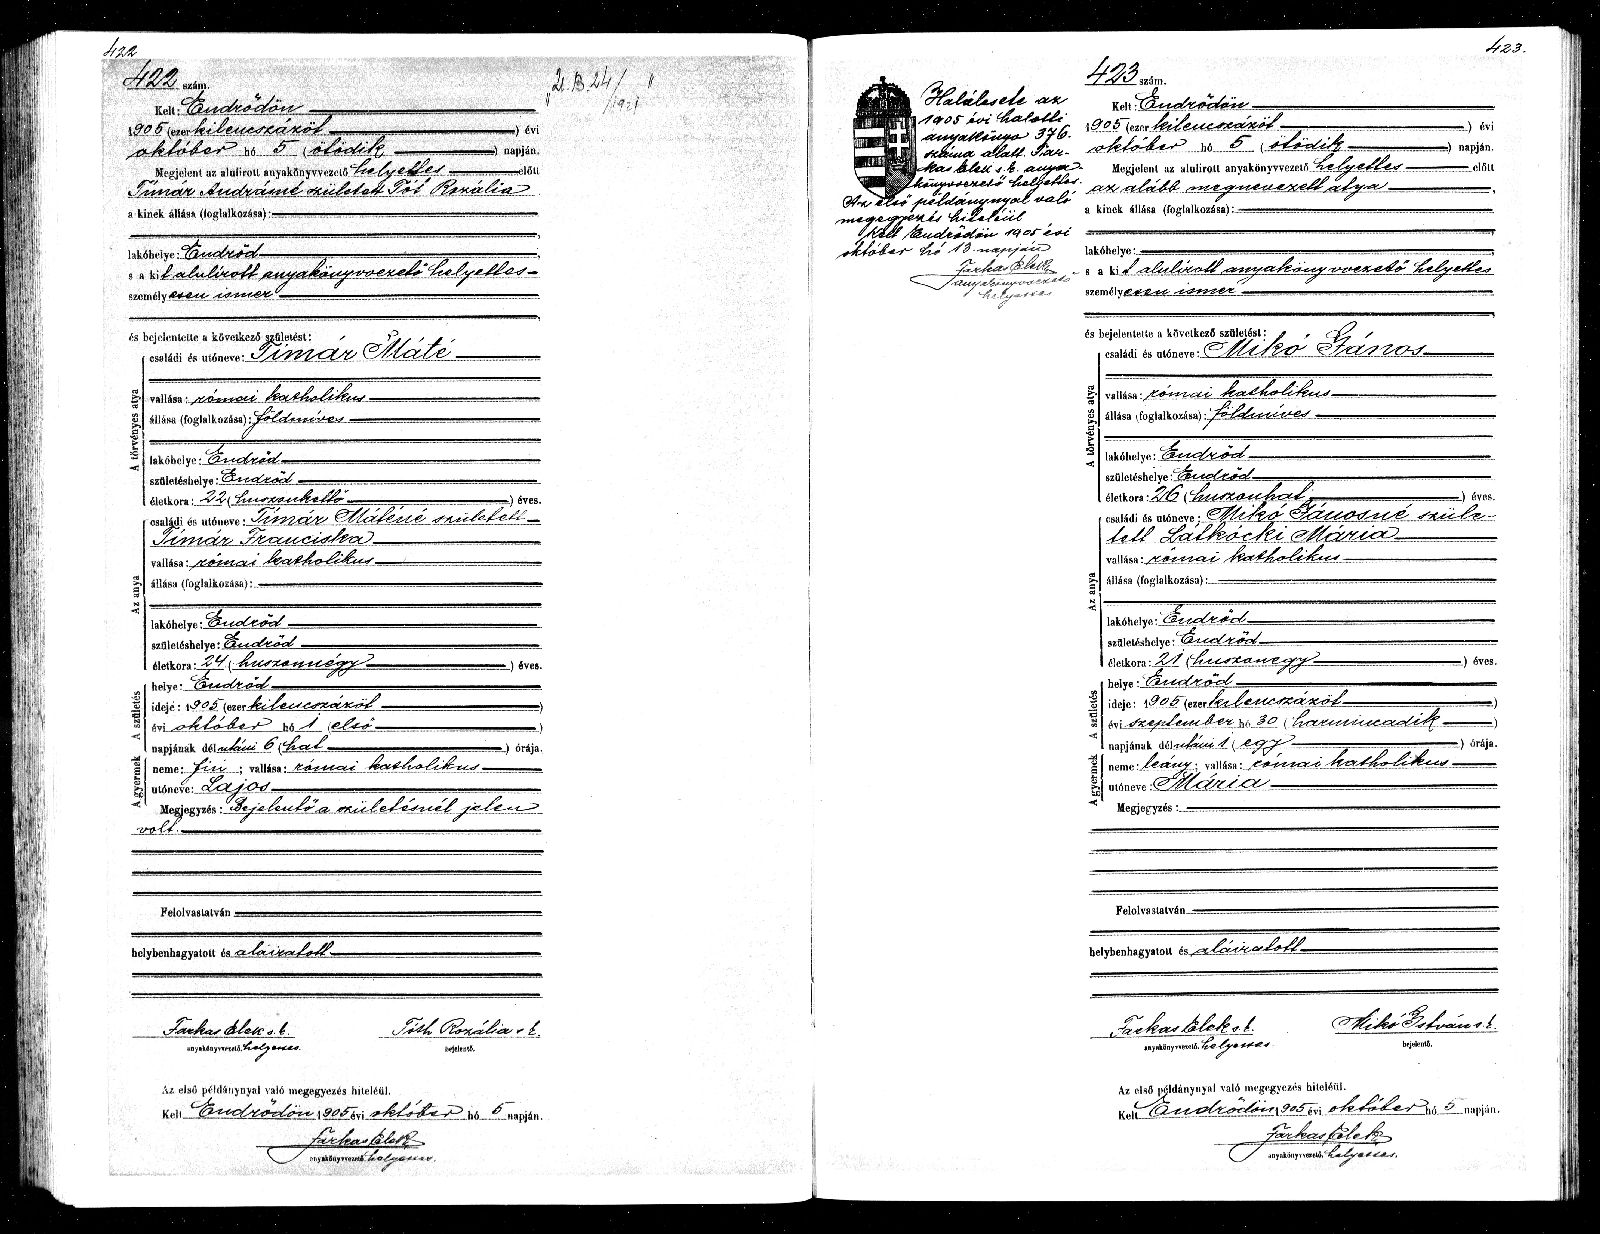 422
422 szám.
Kelt: Endrődön
1905 (ezer kilencszázöt ) évi
október hó 5 (ötödik ) napján.
Megjelent az alulirott anyakönyvvezető helyettes előtt
Timár Andrásné született Tót Rozália
a kinek állása (foglalkozása):
lakóhelye: Endrőd
s a kit alulirott anyakönyvvezető helyettes
személyesen ismer
és bejelentette a következő születést:
A törvényes atya
családi és utóneve: Timár Máté
vallása: római katholikus
állása (foglalkozása): földmives
lakóhelye: Endrőd
születéshelye: Endrőd
életkora: 22 (huszonkettő ) éves.
Az anya
családi és utóneve: Timár Máténé született
Timár Franciska
vallása: római katholikus
állása (foglalkozása):
lakóhelye: Endrőd
születéshelye: Endrőd
életkora: 24 (huszonnégy ) éves.
A születés
helye: Endrőd
ideje: 1905 (ezer kilencszázöt )
évi október hó 1 (első )
napjának délutáni 6 (hat ) órája.
A gyermek
neme: fiu ; vallása: római katholikus
utóneve: Lajos
Megjegyzés: Bejelentő a születésnél jelen
volt.
Felolvastatván
helybenhagyatott és aláiratott
Farkas Elek s. k. Tóth Rozália s. k.
anyakönyvvezető. helyettes bejelentő.
Az első példánynyal való megegyezés hiteléül.
Kelt Endrődön 1905 évi október hó 5 napján.
Farkas Elek
anyakönyvvezető. helyettes.
423.
Halálesete az
1905 évi halotti
anyakönyv 376.
száma alatt. Far-
kas Elek s. k. anya-
könyvvezető helyettes.
Az első példánynyal való
megegyezés hiteléül
Kelt Endrődön 1905 évi
október hó 13 napján
Farkas Elek
anyakönyvvezető
helyettes
423 szám.
Kelt: Endrődön
1905 (ezer kilencszázöt ) évi
október hó 5 (ötödik ) napján.
Megjelent az alulirott anyakönyvvezető helyettes előtt
az alább megnevezett atya
a kinek állása (foglalkozása):
lakóhelye:
s a kit alulirott anyakönyvvezető helyettes
személyesen ismer
és bejelentette a következő születést:
A törvényes atya
családi és utóneve: Mikó János
vallása: római katholikus
állása (foglalkozása): földmives
lakóhelye: Endrőd
születéshelye: Endrőd
életkora: 26 (huszonhat ) éves.
Az anya
családi és utóneve: Mikó Jánosné szüle-
tett Látkócki Mária
vallása: római katholikus
állása (foglalkozása):
lakóhelye: Endrőd
születéshelye: Endrőd
életkora: 21 (huszonegy ) éves.
A születés
helye: Endrőd
ideje: 1905 (ezer kilencszázöt )
évi szeptember hó 30 (harmincadik )
napjának délutáni 1 (egy ) órája.
A gyermek
neme: leány; vallása: római katholikus
utóneve: Mária
Megjegyzés:
Felolvastatván
helybenhagyatott és aláiratott
Farkas Elek s. k. Mikó István s. k.
anyakönyvvezető. helyettes bejelentő.
Az első példánynyal való megegyezés hiteléül.
Kelt Endrődön 1905 évi október hó 5 napján.
Farkas Elek
anyakönyvvezető. helyettes.